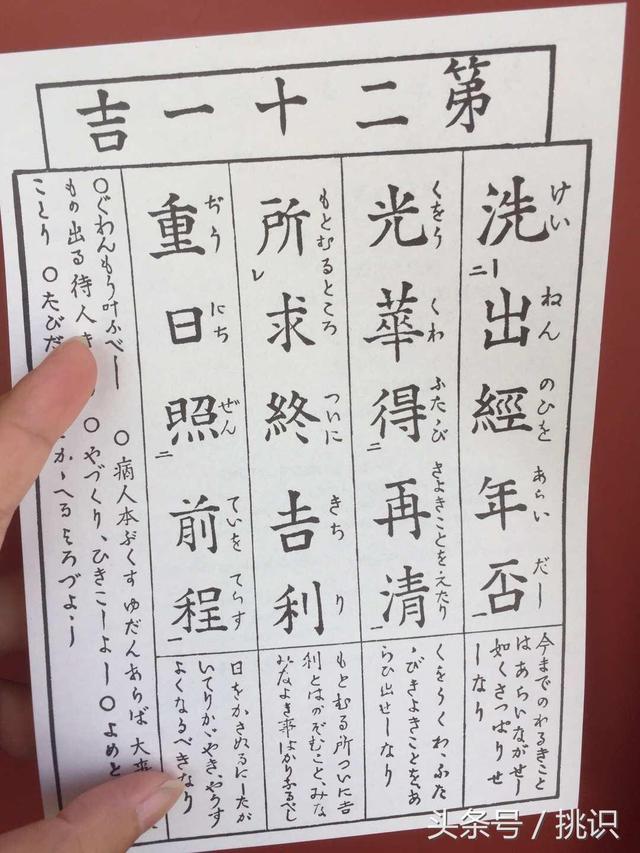 第二十一吉
洗出經年否
けいねんのひをあらいだし
光華得再清
くをうくわふたゝびきよきことをえたり
所求終吉利
もとむるところついにきちり
重日照前程
ぢうにちぜんていをてらす
今までのわるきこと
はあらいながせし
如くさっぱりせ
しなり
くをうくわ、ふた
ゝびきよきことをあ
らひ出せしなり
もとむる所ついに吉
利とはのぞむこと、みな
みなよき事ばかりなるべし
日をかさぬるにしたが
いてりかゞやき、やうす
よくなるべきなり
○ぐわんもう叶ふべし ○病人本ぶくす ゆだんあらば 大
もの出る 待人 ○やづくり、ひきこしよし ○よめと
ことり ○たびだ かへるよろづよし
头条号 / 挑识